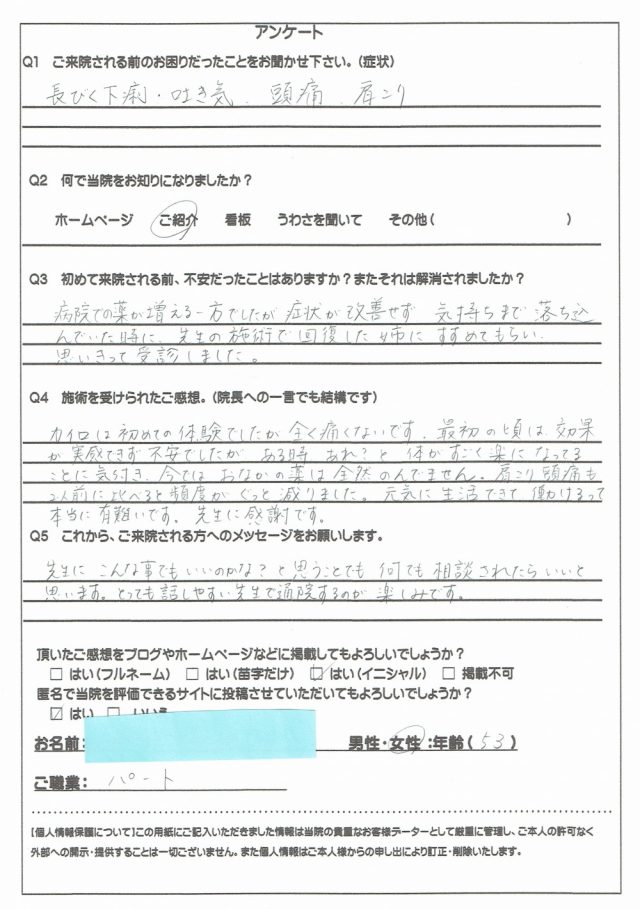 アンケート
Q1 ご来院される前のお困りだったことをお聞かせ下さい。(症状)
長びく下痢・吐き気、頭痛、肩こり
Q2 何で当院をお知りになりましたか?
ホームページ ご紹介 看板 うわさを聞いて その他( )
Q3 初めて来院される前、不安だったことはありますか?またそれは解消されましたか?
病院での薬が増える一方でしたが症状が改善せず 気持ちまで落ち込
んでいた時に、先生の施術で回復した姉にすすめてもらい、
思いきって受診しました。
Q4 施術を受けられたご感想。(院長への一言でも結構です)
カイロは初めての体験でしたが全く痛くないです。最初の頃は、効果
が実感できず不安でしたが ある時 あれ?と 体がすごく楽になってる
ことに気付き、今では おなかの薬は全然のんでません。肩こり頭痛も
以前に比べると頻度がぐっと減りました。元気に生活できて、働けるって
本当に有難いです。先生に感謝です。
Q5 これから、ご来院される方へのメッセージをお願いします。
先生に こんな事でもいいのかな?と思うことでも 何でも相談されたらいいと
思います。とっても話しやすい先生で通院するのが 楽しみです。
頂いたご感想をブログやホームページなどに掲載してもよろしいでしょうか?
□ はい(フルネーム) □ はい(苗字だけ) ☑ はい(イニシャル) □ 掲載不可
匿名で当院を評価できるサイトに投稿させていただいてもよろしいでしょうか?
☑ はい □ いいえ
お名前: 男性・女性:年齢(53)
ご職業: パート
【個人情報保護について】この用紙にご記入いただきました情報は当院の貴重なお客様データーとして厳重に管理し、ご本人の許可なく
外部への開示・提供することは一切ございません。また個人情報はご本人様からの申し出により訂正・削除いたします。